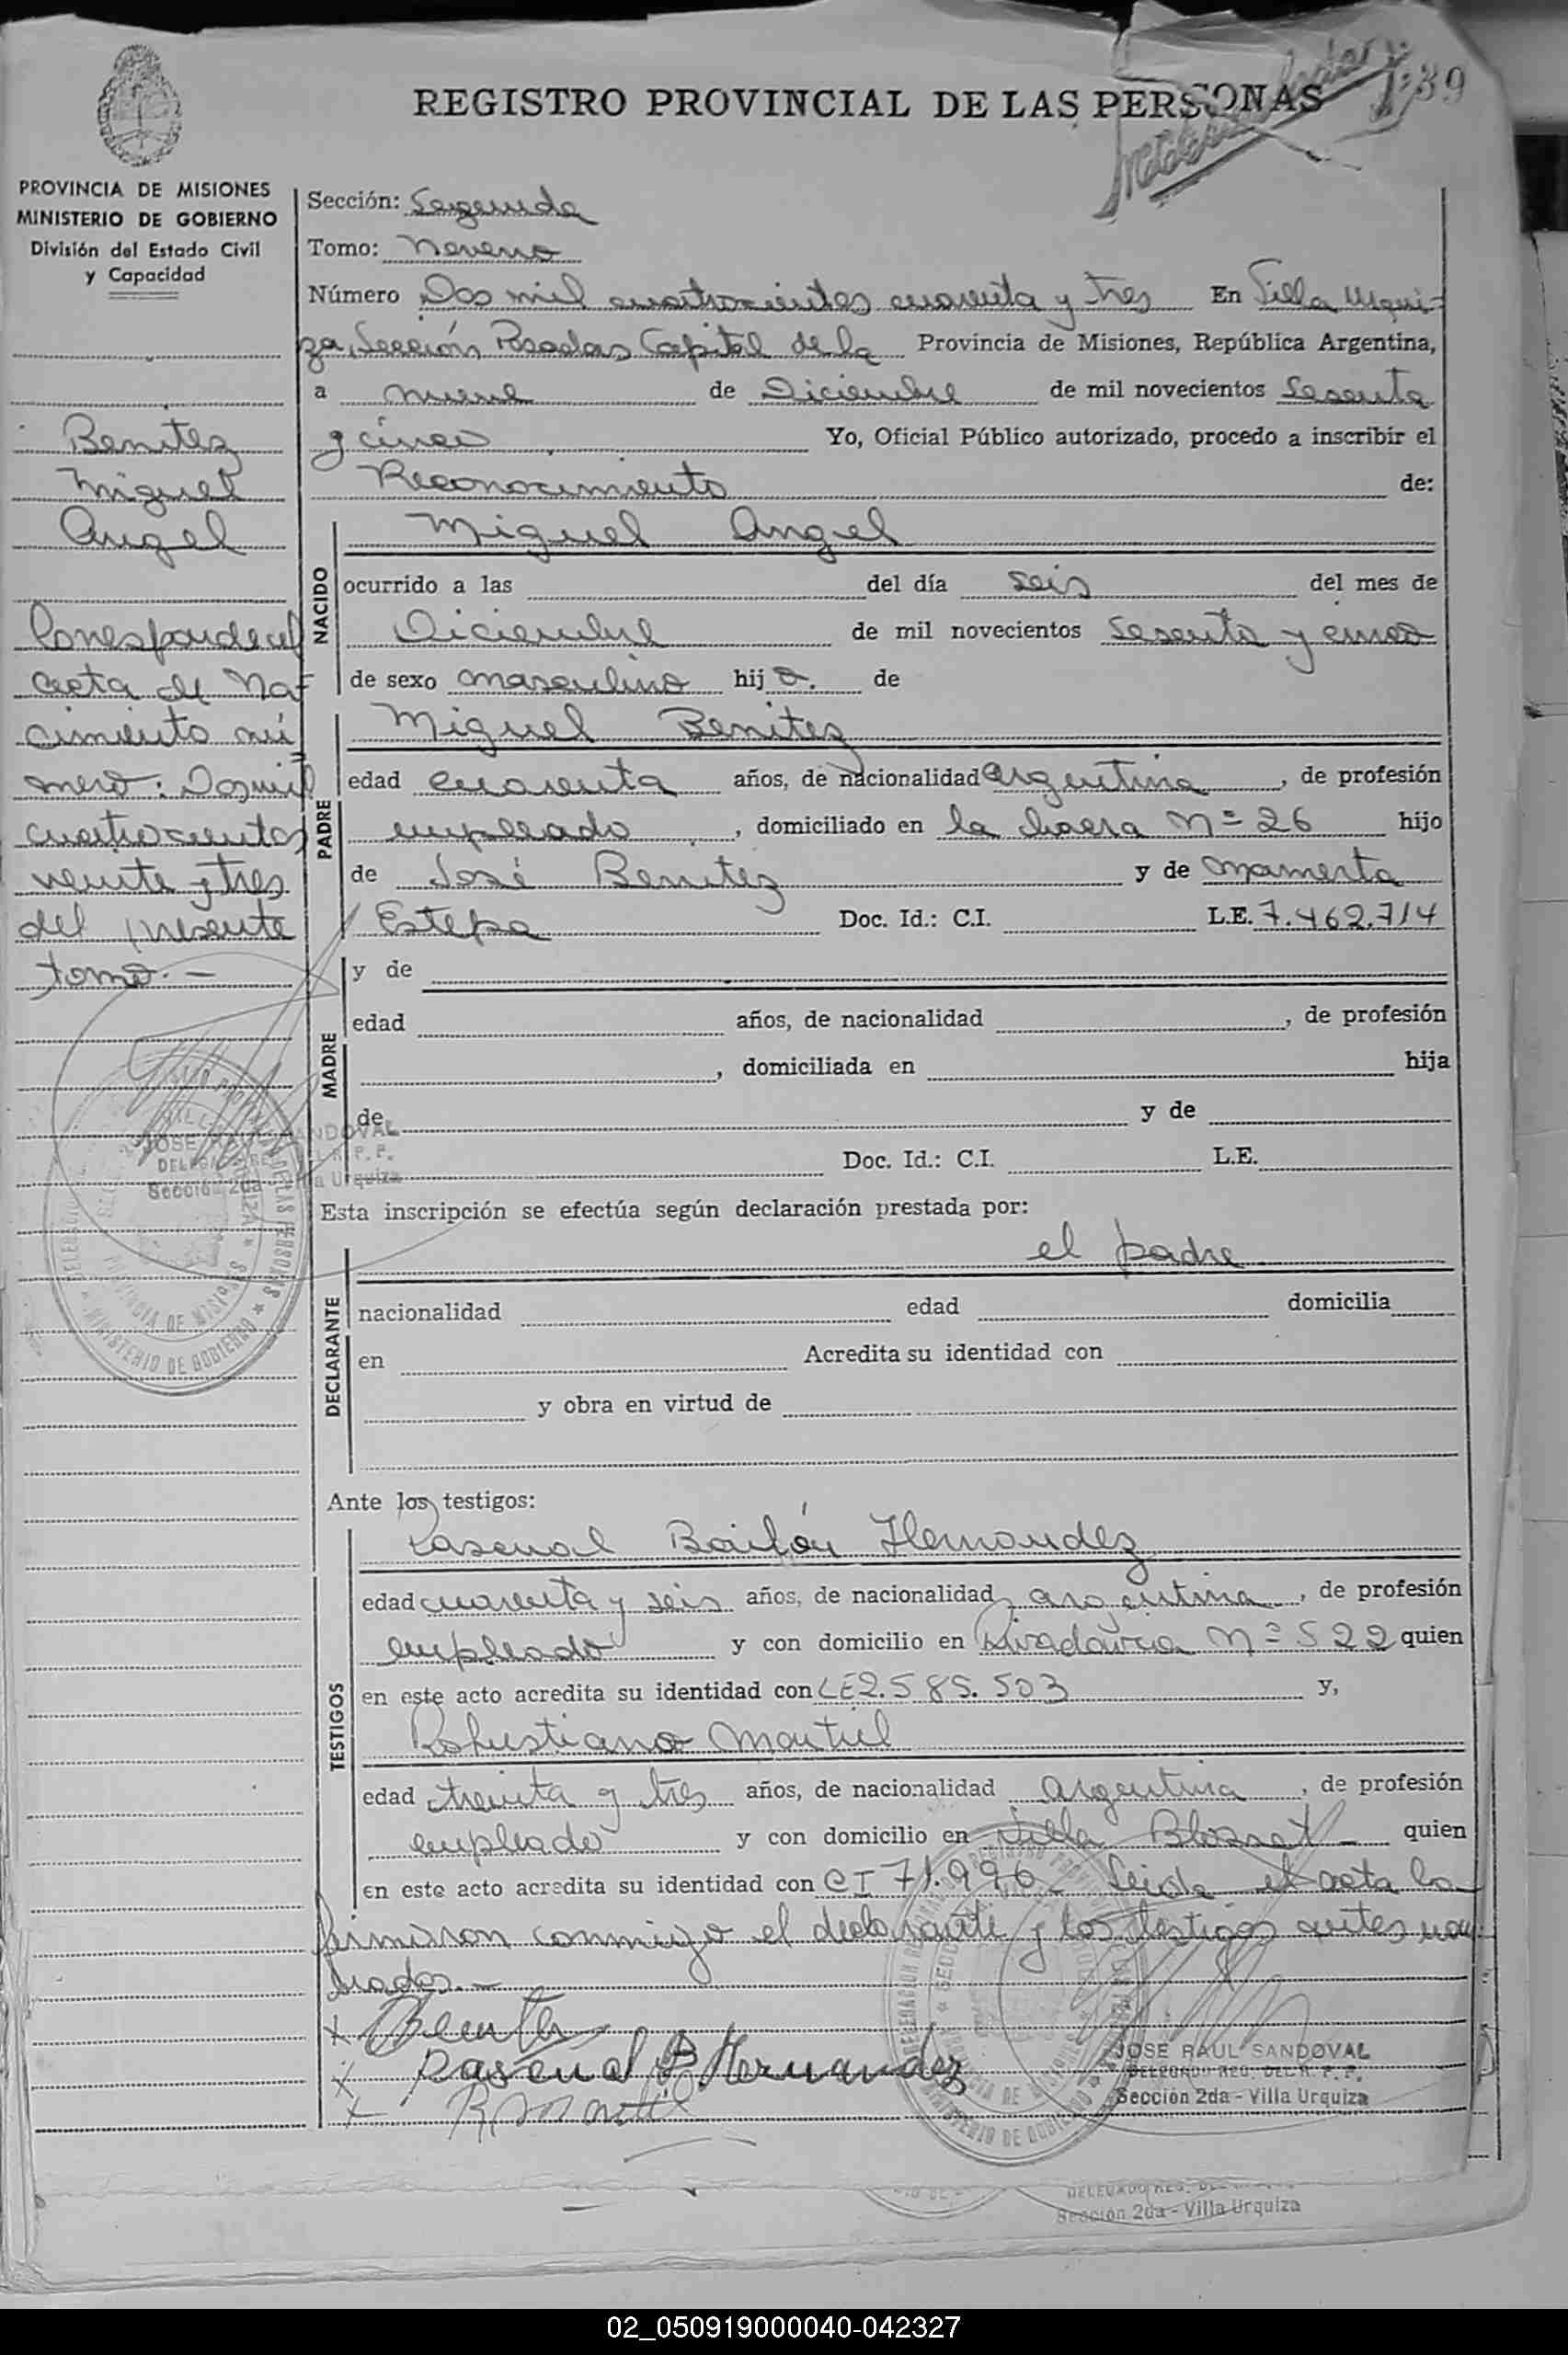 REGISTRO PROVINCIAL DE LAS PERSONAS
39
PROVINCIA DE MISIONES
MINISTERIO DE GOBIERNO
División del Estado Civil
y Capacidad
Benitez
Miguel
Angel
Corresponde al
acta de Na-
cimiento nú
mero: Dos mil
cuatrocientos
veinte y tres
del presente
tomo.-
Sección: Segunda
Tomo: Noveno
Número Dos mil cuatrocientos cuarenta y tres En Villa Urqui-
za, Sección Posadas Capital de la Provincia de Misiones, República Argentina,
a nueve de Diciembre de mil novecientos Sesenta
y cinco Yo, Oficial Público autorizado, procedo a inscribir el
Reconocimiento de:
NACIDO
Miguel Angel
ocurrido a las del día seis del mes de
Diciembre de mil novecientos Sesenta y cinco
de sexo masculino hijo. de
PADRE
Miguel Benitez
edad cuarenta años, de nacionalidad argentina, de profesión
empleado, domiciliado en la chacra Nº 26 hijo
de José Benitez y de Mamerta
Estepa Doc. Id.: C.I. L.E. 7.462.714
MADRE
y de
edad años, de nacionalidad , de profesión
, domiciliada en hija
de y de
Doc. Id.: C.I. L.E.
JOSE RAUL SANDOVAL
Sección 2da - Villa Urquiza
Esta inscripción se efectúa según declaración prestada por:
DECLARANTE
el padre
nacionalidad edad domicilia
en Acredita su identidad con
y obra en virtud de
Ante los testigos:
TESTIGOS
Pascual Bailón Hernandez
edad cuarenta y seis años, de nacionalidad argentina, de profesión
empleado y con domicilio en Rivadavia Nº 522 quien
en este acto acredita su identidad con LE 2.585.503 y,
Robustiano Montiel
edad treinta y tres años, de nacionalidad argentina, de profesión
empleado y con domicilio en Villa Blosset - quien
en este acto acredita su identidad con CI 71.996 Leida el acta la
firmaron conmigo el declarante y los testigos antes nom
brados.-
x Benitez
x Pascual B Hernandez
x R Montiel
JOSE RAUL SANDOVAL
DELEGADO REG. DEL R. P. P.
Sección 2da - Villa Urquiza
Sección 2da - Villa Urquiza
02_050919000040-042327